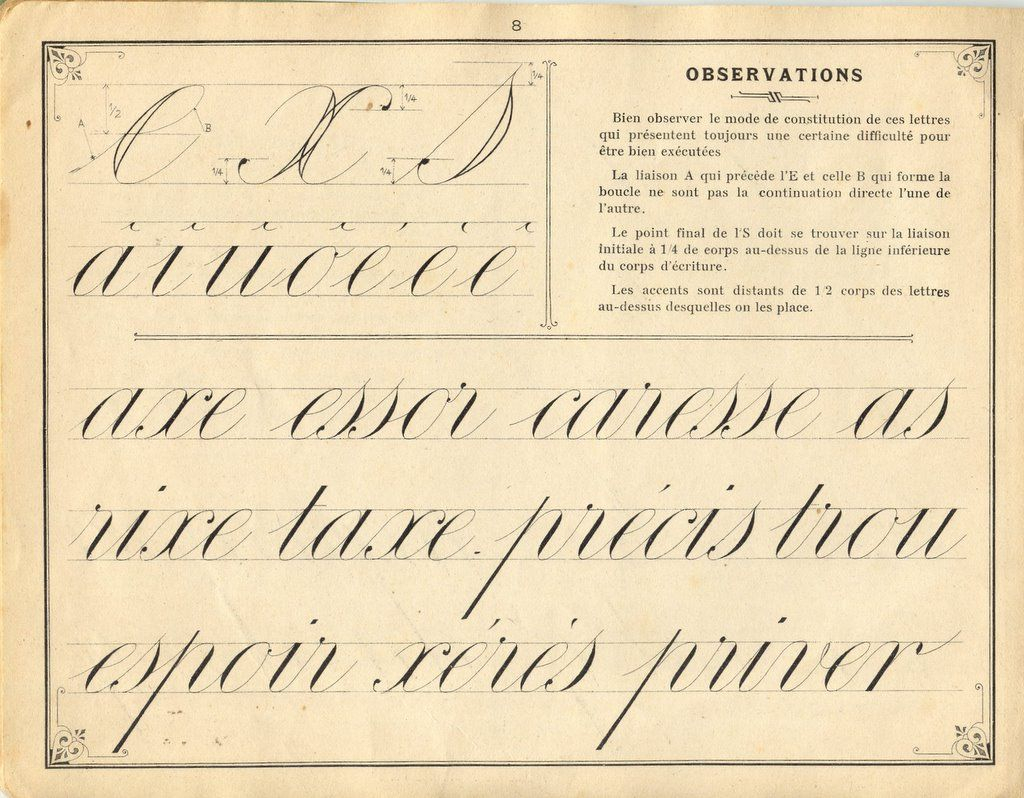 8
e x s
1/2
A
B
1/4
1/4
1/4
1/4
OBSERVATIONS
Bien observer le mode de constitution de ces lettres
qui présentent toujours une certaine difficulté pour
être bien exécutées
La liaison A qui précède l'E et celle B qui forme la
boucle ne sont pas la continuation directe l'une de
l'autre.
Le point final de l'S doit se trouver sur la liaison
initiale à 1/4 de corps au-dessus de la ligne inférieure
du corps d'écriture.
Les accents sont distants de 1/2 corps des lettres
au-dessus desquelles on les place.
axe essor caresse as
rixe taxe. précis trou
espoir xérés priver